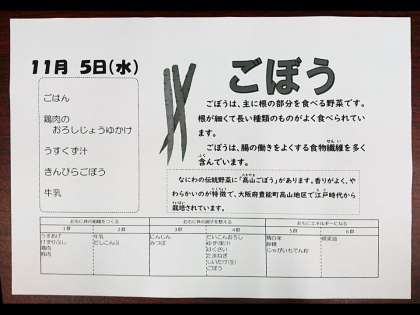 11月 5日(水)
ごはん
鶏肉の
おろしじょうゆかけ
うすくず汁
きんぴらごぼう
牛乳
ごぼう
ごぼうは、主に根の部分を食べる野菜です。
根が細くて長い種類のものがよく食べられてい
ます。
ごぼうは、腸の働きをよくする食物繊維を多く
含んでいます。
なにわの伝統野菜に「高山ごぼう」があります。香りがよく、や
わらかいのが特徴で、大阪府豊能町高山地区で江戸時代から
栽培されています。
おもに体の組織をつくる おもに体の調子を整える おもにエネルギーになる
1 2 3 4 5 6
うすあげ 牛乳 にんじん だいこんおろし 精白米
けずりぶし だしこんぶ みつば ゆず(果汁) 砂糖
鶏肉 はくさい じゃがいもでんぷん
豚肉 たまねぎ
しいたけ(生)
ごぼう